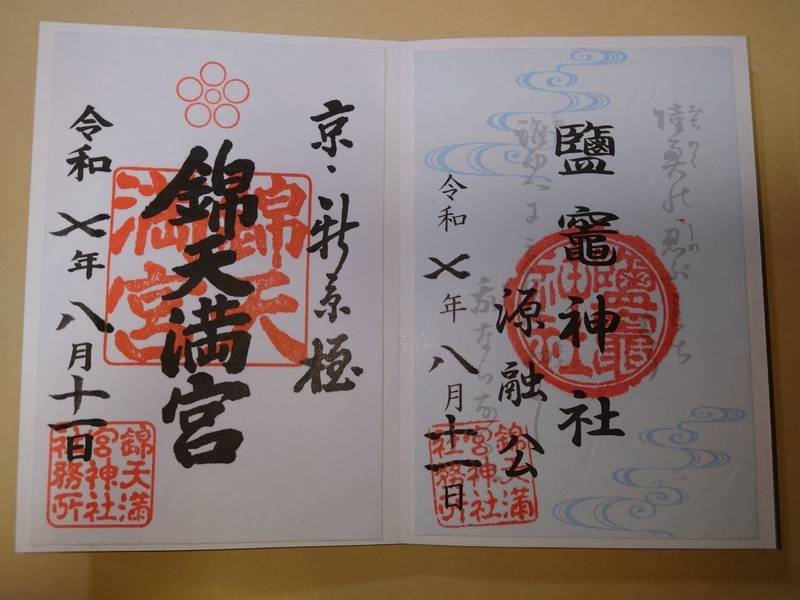 鹽竈神社
鹽竈
神社
源融公
令和七年八月十一日
錦天満
宮神社
社務所
京・新京極
錦天満宮
錦天
満宮
令和七年八月十一日
錦天満
宮神社
社務所